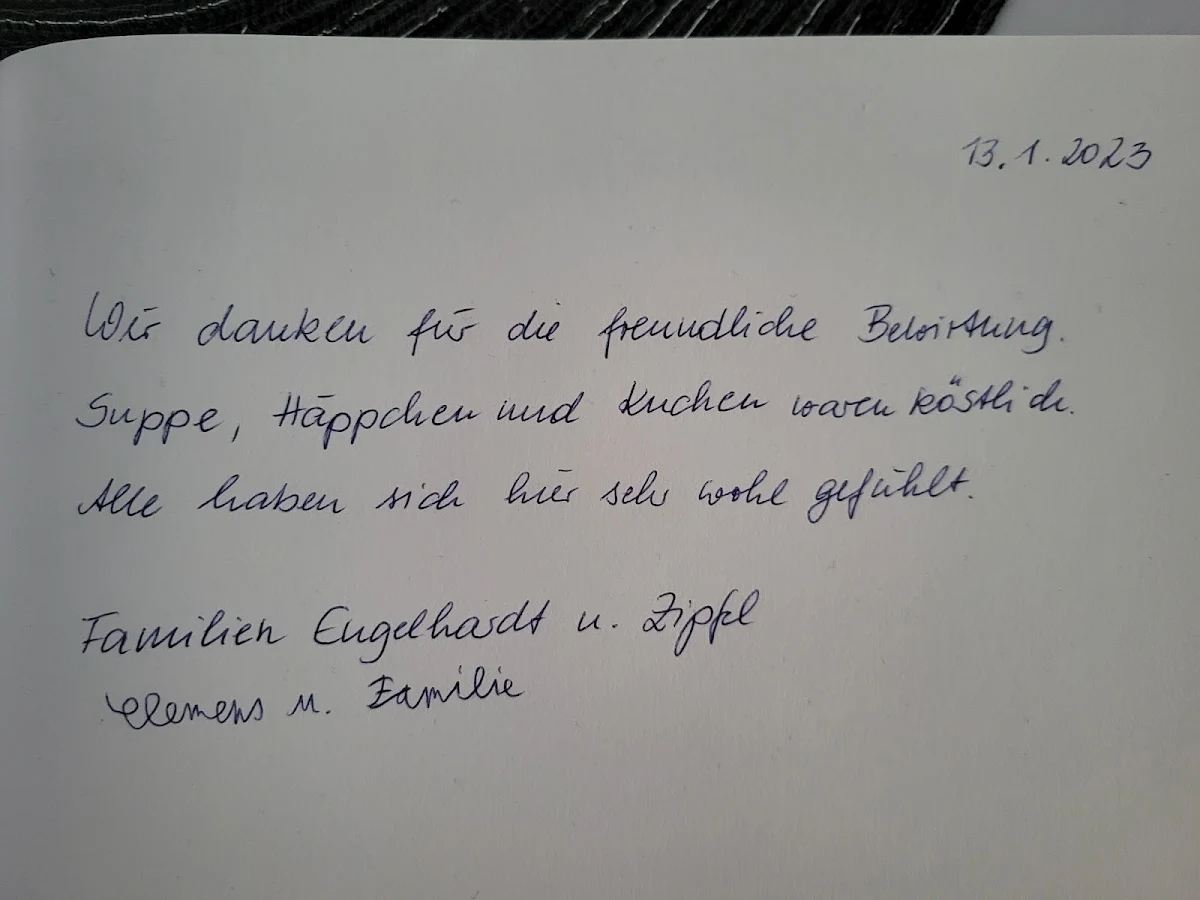 13.1.2023
Wir danken für die freundliche Bewirtung.
Suppe, Häppchen und Kuchen waren köstlich.
Alle haben sich hier sehr wohl gefühlt.
Familien Engelhardt u. Zipfel
Clemens u. Familie